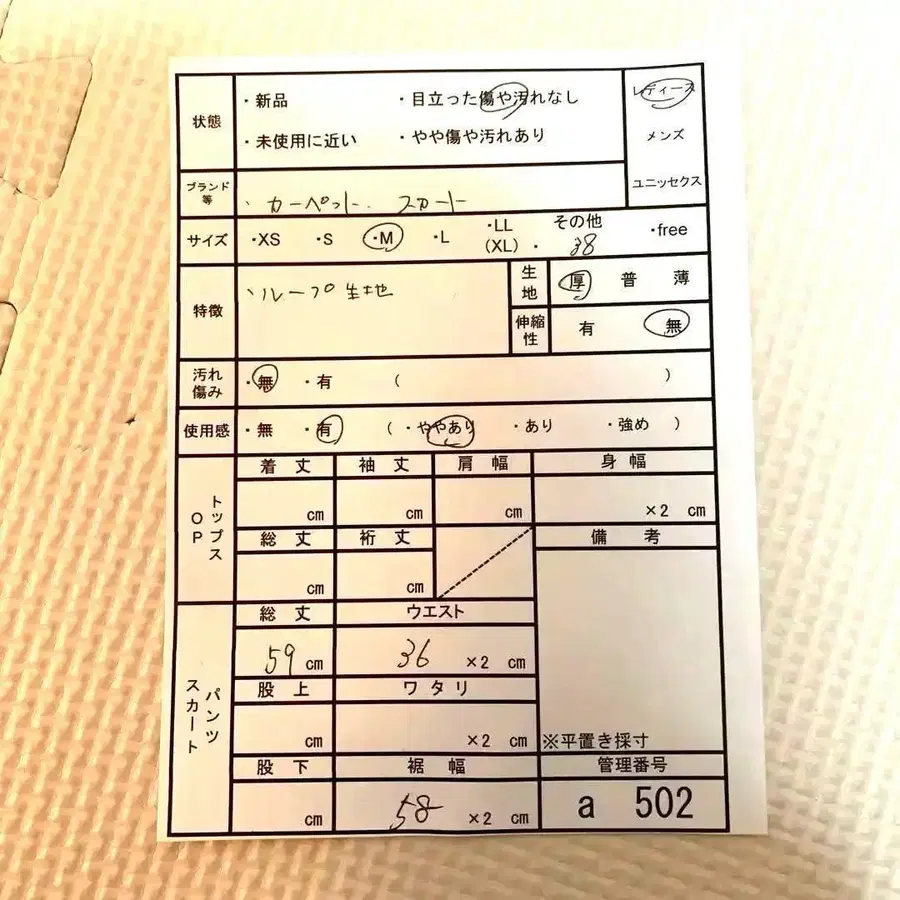 状態
・新品 ・目立った傷や汚れなし
・未使用に近い ・やや傷や汚れあり
レディース
メンズ
ユニッセクス
ブランド等
、カーペット、スカート
サイズ ・XS ・S ・M ・L ・LL(XL)・ その他 38 ・free
特徴
、ループ生地
生地 厚 普 薄
伸縮性 有 無
汚れ傷み ・無 ・有 ( )
使用感 ・無 ・有 (・ややあり ・あり ・強め )
トップス OP
着丈 袖丈 肩幅 身幅
cm cm cm ×2 cm
総丈 裄丈 備考
cm cm
パンツ スカート
総丈 ウエスト
59 cm 36 ×2 cm
股上 ワタリ
cm ×2 cm ※平置き採寸
股下 裾幅 管理番号
cm 58 ×2 cm a 502